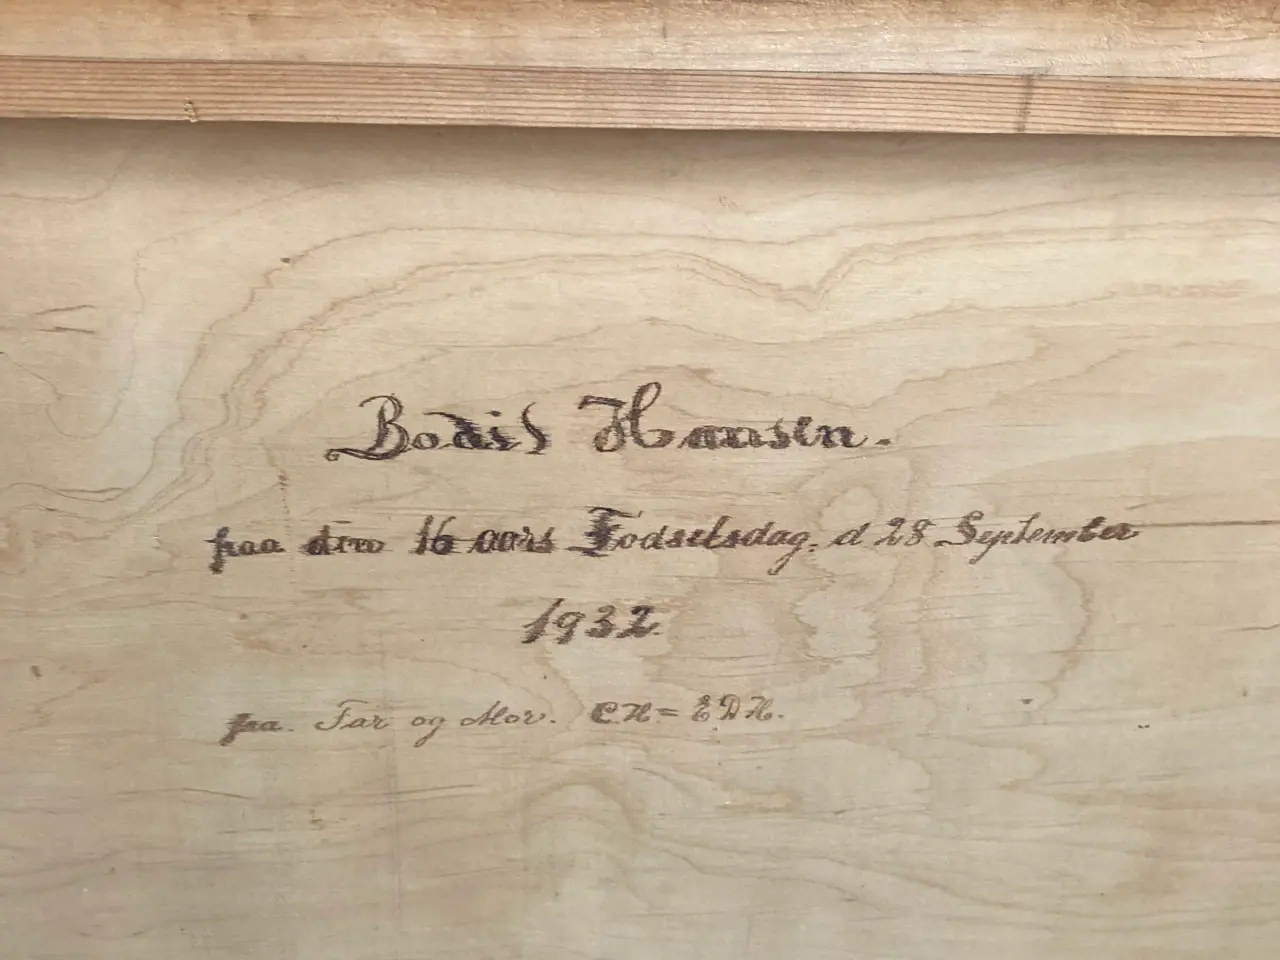 Bodil Hansen.
paa din 16 aars Fodselsdag. d 28 September
1932.
fra. Far og Mor. CH = EDH.